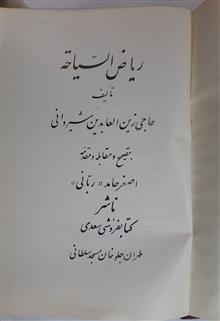 ریاض السّیاحة
تألیف
حاجی زین العابدین شیروانی
بتصحیح و مقابله و مقدمه
اصغر حامد «ربّانی»
ناشر
کتابفروشی سعدی
طهران جلوخان مسجد سلطانی